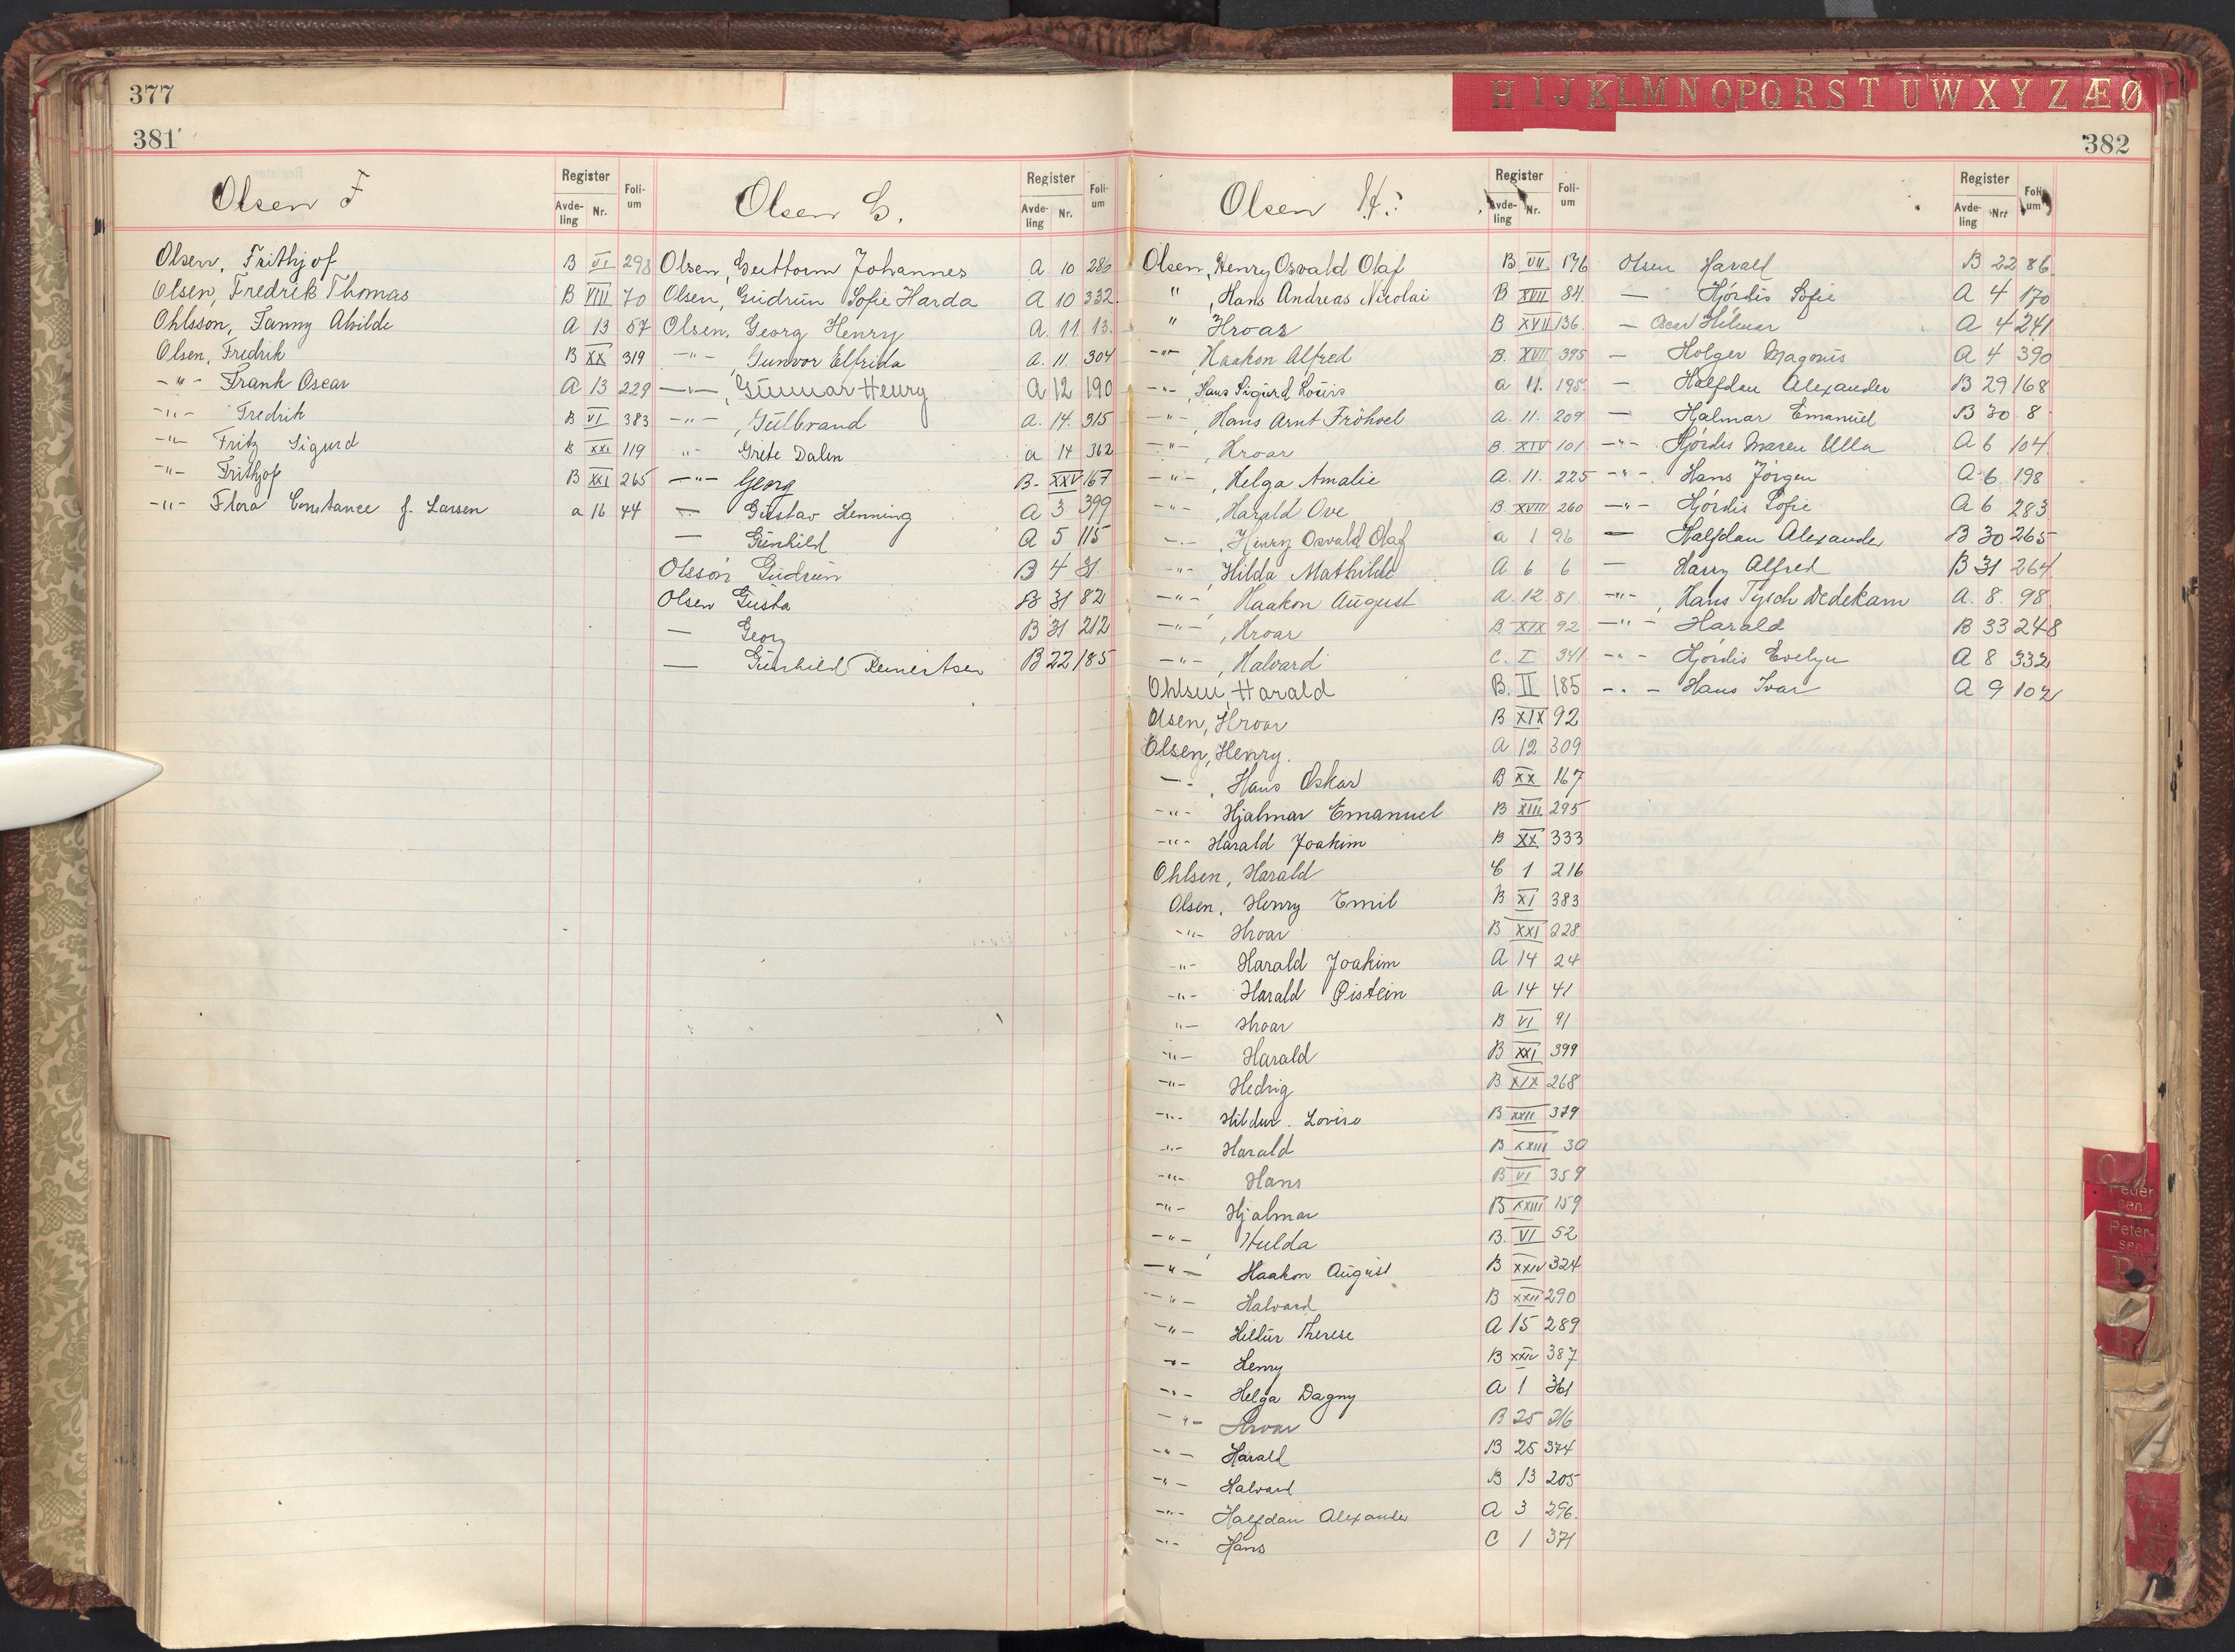 377
381
Olsen F
Register
Avde-
ling
Nr.
Foli-
um
Olsen, Frithjof B VI 298
Olsen, Fredrik Thomas B VIII 70
Ohlsson, Fanny Alvilde A 13 57
Olsen, Fredrik B XX 319
-"- Frank Oscar A 13 229
-"- Fredrik B VI 383
-"- Fritz Sigurd B XXI 119
-"- Frithjof B XXI 265
-"- Flora Constance f. Larsen a 16 44
Olsen G.
Register
Avde-
ling
Nr.
Foli-
um
Olsen, Guttorm Johannes A 10 286
Olsen, Gudrun Sofie Harda A 10 332
Olsen, Georg Henry A. 11. 13.
-"- , Gunvor Elfrida a. 11. 304
-"- , Gunnar Henry A 12 190
-"- , Gulbrand a. 14. 315
"- Grete Dalen a 14 362
-"- Georg B- XXV 167
-"- Gustav Henning A 3 399
— Gunhild A 5 115
Olsson Gudrun B 4 31
Olsen Gusta B 31 82
— Georg B 31 212
— Gunhild Reinertsen B 22 185
H I J K L M N O P Q R S T U W X Y Z Æ Ø
382
Olsen H.
Register
Avde-
ling
Nr.
Foli-
um
Olsen, Henry Osvald Olaf B VII 176
" , Hans Andreas Nicolai B XVII 84.
" Hroar B XVII 136.
-"- , Haakon Alfred B. XVII 395
-"- , Hans Sigurd Louis a 11. 195.
-"- , Hans Arnt Fröhoel a. 11. 209
-"- , Hroar B. XIV 101
-"- , Helga Amalie A. 11. 225
-"- , Harald Ove B. XVIII 260
-"- , Henry Osvald Olaf a 1 96
-"- , Hilda Mathilde A 6 6
-"- , Haakon August a. 12. 81.
-"- , Hroar B. XIX 92
-"- , Halvard C. I 341
Ohlsen, Harald B. II 185
Olsen, Hroar B XIX 92
Olsen, Henry. A 12 309
-"- , Hans Oskar B XX 167
-"- Hjalmar Emanuel B XIII 295
-"- Harald Joakim B XX 333
Ohlsen, Harald C 1 216
Olsen, Henry Emil B XI 383
-"- Hroar B XXI 228
-"- Harald Joakim A 14 24
-"- Harald Øistein A 14 41
"- Hroar B VI 91
-"- Harald B XXI 399
-"- Hedvig B XIX 268
-"- Hildur. Lovise B XXII 379
-"- Harald B XXIII 30
-"- Hans B VI 359
-"- Hjalmar B XXIII 159
-"- , Hulda B. VI 52
-"- Haakon August B XXIV 324
-"- Halvard B XXII 290
-"- Hildur Therese A 15 289
-"- Henry B XXIV 387
-"- Helga Dagny A 1 361
-"- Hroar B 25 216
-"- Harald B 25 374
-"- Halvard B 13 205
-"- Halfdan Alexander A 3 296.
-"- Hans C 1 371
Register
Avde-
ling
Nr.
Foli-
um
Olsen Harald B 22 86
— Hjórdis Sofie A 4 170
— Oscar Hilmar A 4 241
— Holger Magnus A 4 390
— Halfdan Alexander B 29 168
— Hjalmar Emanuel B 30 8
-"- Hjórdis Maren Ulla A 6 104
-"- Hans Jörgen A 6 198
-"- Hjórdis Sofie A 6 283
— Halfdan Alexander B 30 265
— Harry Alfred B 31 264
-"- , Hans Tysch Dedekam A. 8. 98.
-"- Harald B 33 248
-"- Hjórdis Evelyn A 8 332
-"- Hans Ivar A 9 102
Peder
sen
Peter-
sen